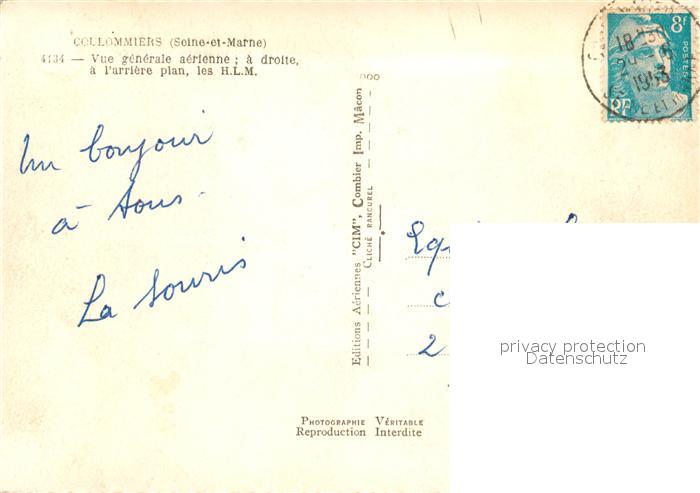 COULOMMIERS (Seine-et-Marne)
4134 — Vue générale aérienne ; à droite,
à l'arrière plan, les H.L.M.
8F
POSTES
RF
18 H30
1953
Un bonjour
à tous.
La souris
Editions Aériennes "CIM", Combier Imp. Mâcon
CLICHÉ RANCUREL
2
privacy protection
Datenschutz
PHOTOGRAPHIE VÉRITABLE
Reproduction Interdite